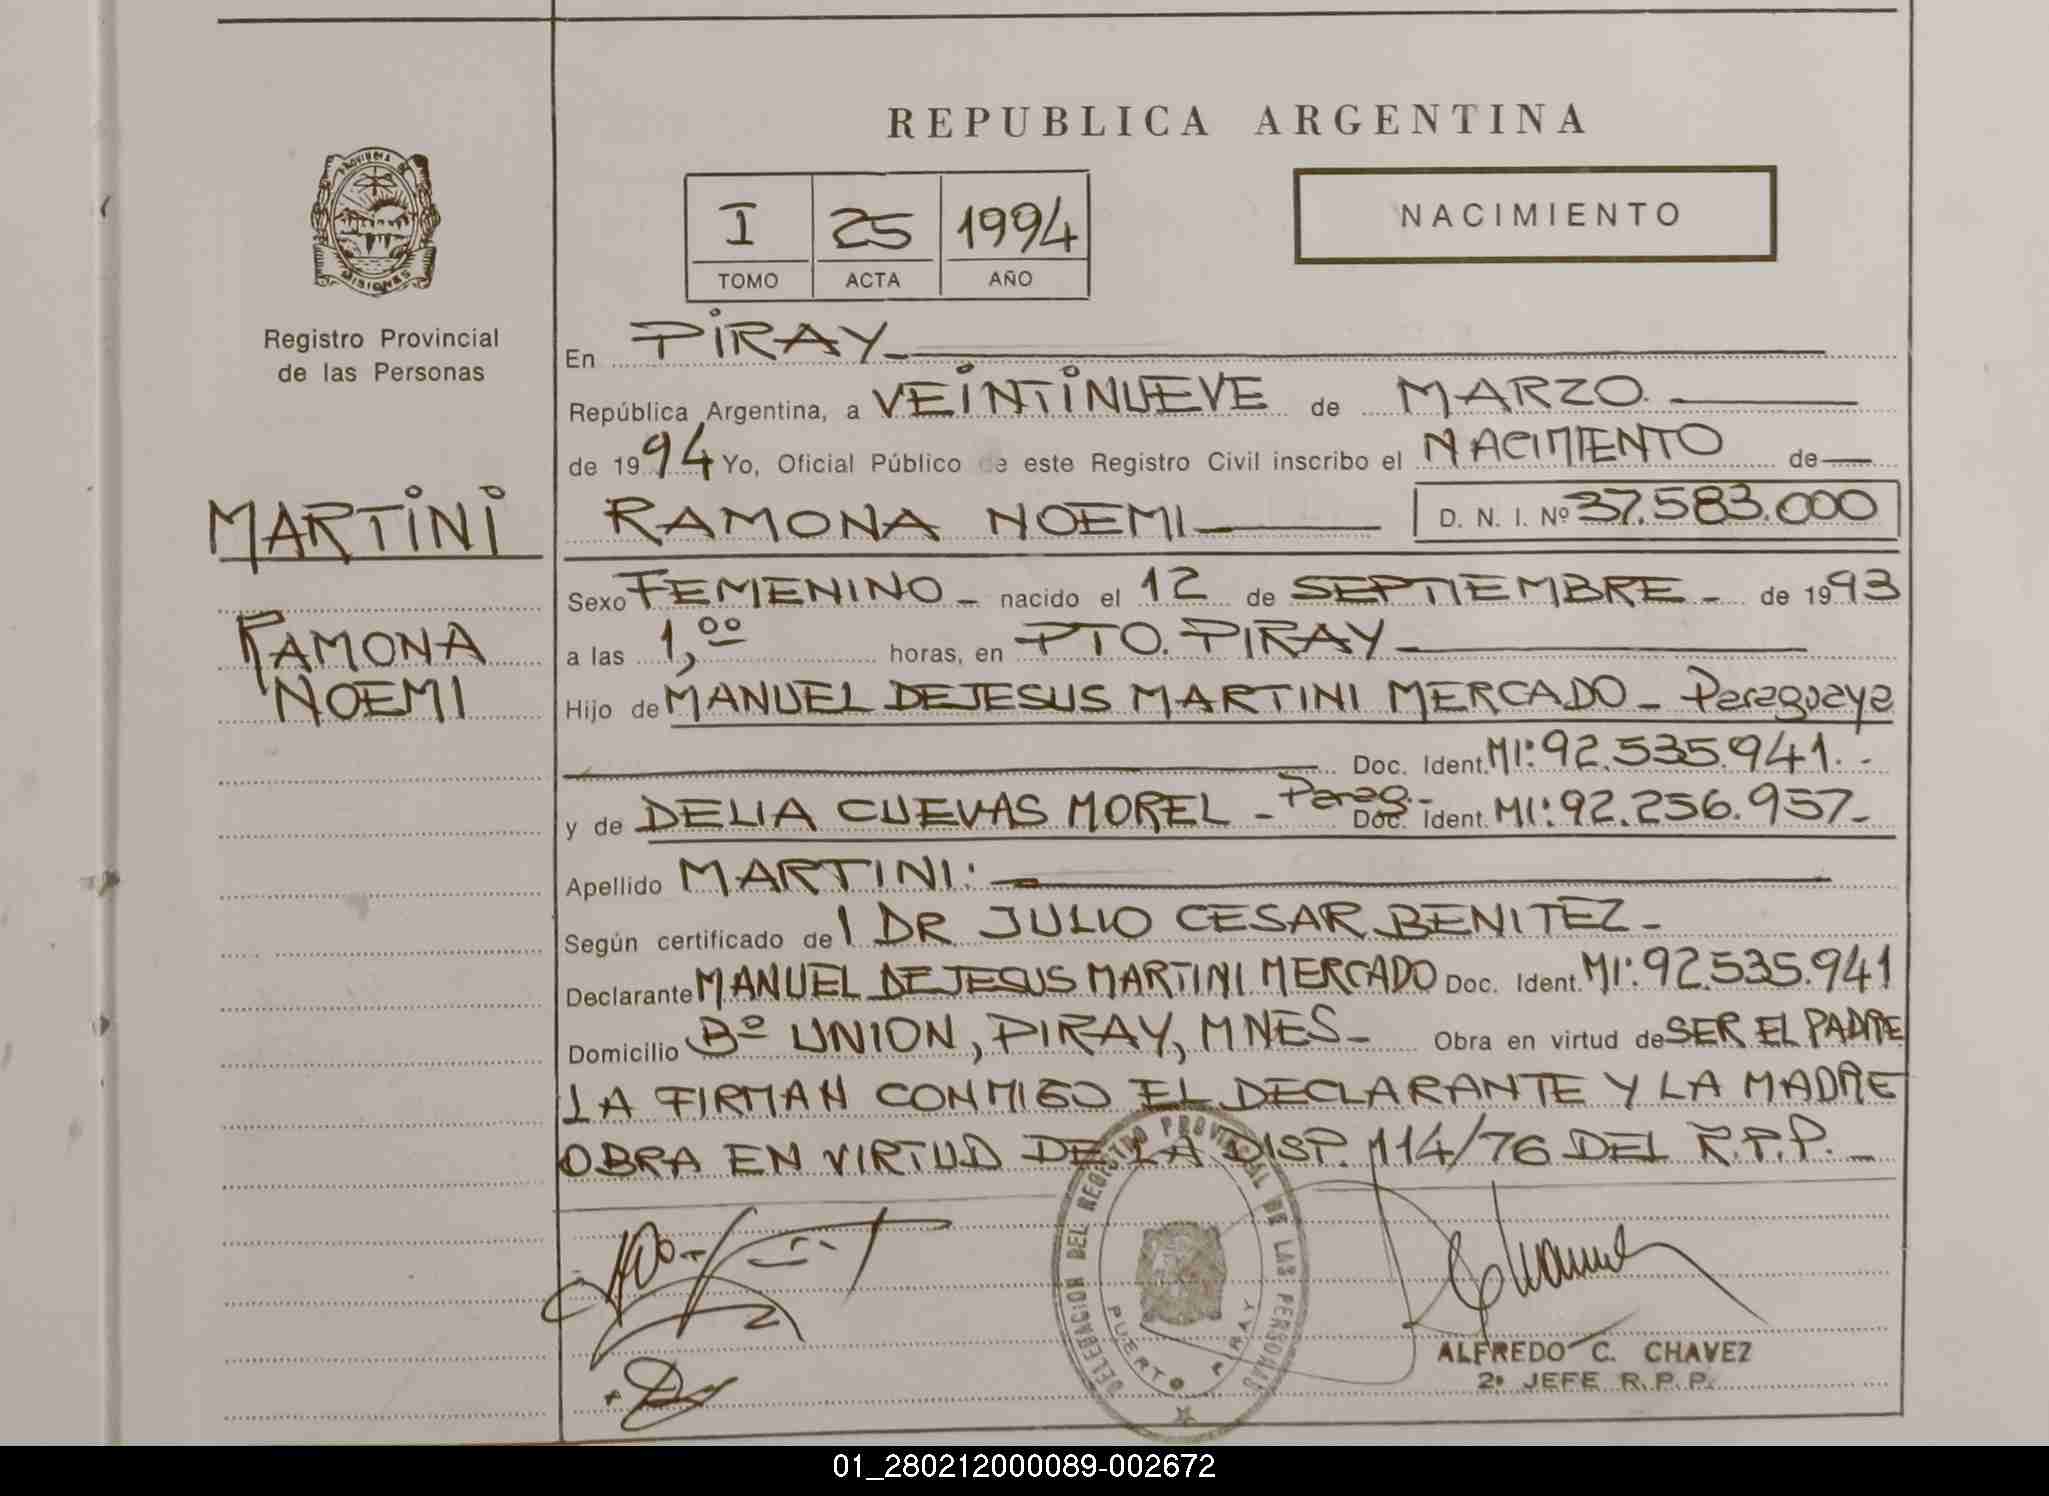 REPUBLICA ARGENTINA
PROVINCIA DE
MISIONES
I 25 1994
TOMO ACTA AÑO
NACIMIENTO
Registro Provincial
de las Personas
MARTINI
RAMONA
NOEMI
En PIRAY
República Argentina, a VEINTINUEVE de MARZO.
de 1994 Yo, Oficial Público de este Registro Civil inscribo el NACIMIENTO de
RAMONA NOEMI D. N. I. Nº 37.583.000
Sexo FEMENINO - nacido el 12 de SEPTIEMBRE - de 1993
a las 1,00 horas, en PTO. PIRAY
Hijo de MANUEL DE JESUS MARTINI MERCADO - Paraguaya
Doc. Ident. MI: 92.535.941. -
y de DELIA CUEVAS MOREL - Parag. - Doc. Ident. MI: 92.256.957-
Apellido MARTINI:
Según certificado del DR JULIO CESAR BENITEZ -
Declarante MANUEL DE JESUS MARTINI MERCADO Doc. Ident. MI: 92.535.941
Domicilio Bº UNION, PIRAY, MNES - Obra en virtud de SER EL PADRE
LA FIRMAN CONMIGO EL DECLARANTE Y LA MADRE
OBRA EN VIRTUD DE LA DISP. 114/76 DEL R.P.P. -
DELEGACION DEL REGISTRO PROVINCIAL DE LAS PERSONAS
PUERTO PIRAY
ALFREDO C. CHAVEZ
2º JEFE R. P. P.
01_280212000089-002672